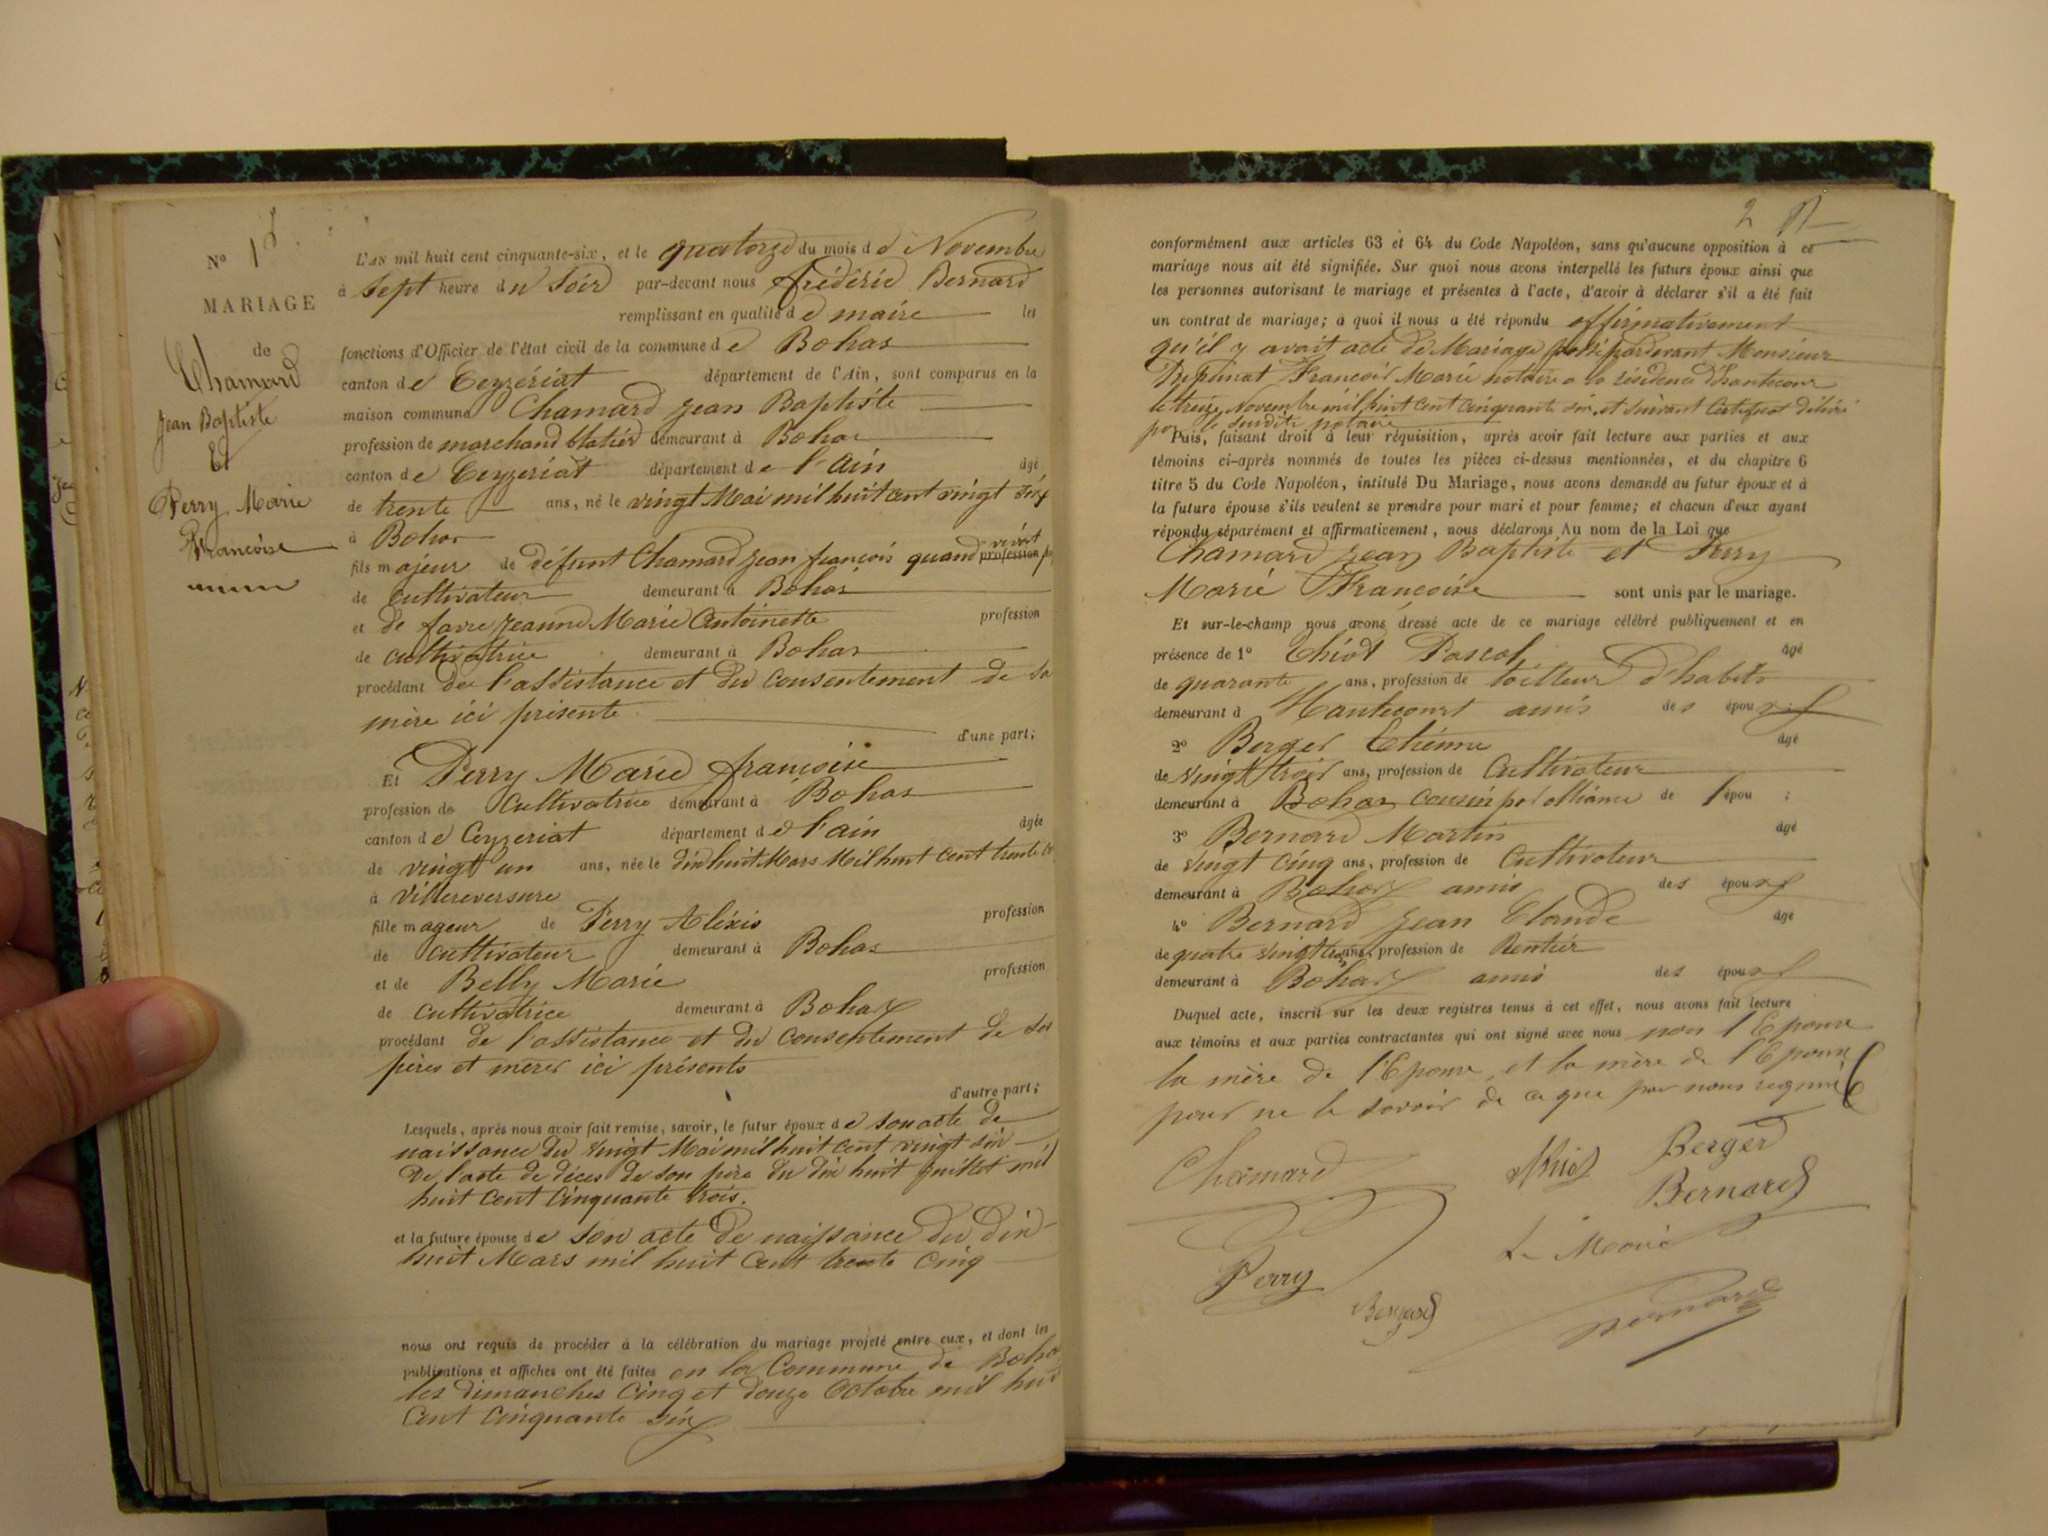 N° 18.
MARIAGE
de
Chamard
Jean Baptiste
Et
Perry Marie
Françoise
L'AN mil huit cent cinquante-six, et le quatorze du mois de Novembre
à sept heure du Soir par-devant nous frédéric Bernard
remplissant en qualité de maire les
fonctions d'Officier de l'état civil de la commune de Bohas
canton de Ceyzériat département de l'Ain, sont comparus en la
maison commune Chamard Jean Baptiste
profession de marchand blatier demeurant à Bohas
canton de Ceyzeriat département de l'Ain âgé
de trente ans, né le vingt Mai mil huit cent vingt six
à Bohas
fils majeur de défunt Chamard Jean françois quand vivait profession
de cultivateur demeurant à Bohas
et de favre Jeanne Marie Antoinette profession
de cultivatrice demeurant à Bohas
procédant de l'assistance et du consentement de sa
mère ici présente
d'une part;
Et Perry Marie françoise
profession de Cultivatrice demeurant à Bohas
canton de Ceyzeriat département de l'ain âgée
de vingt un ans, née le dix huit Mars Mil huit cent trente
à Villereversure
fille mageur de Perry Aléxis profession
de cultivateur demeurant à Bohas
et de Belly Marie profession
de cultivatrice demeurant à Bohas
procédant de l'assistance et du consentement de ses
pères et mères ici présents
d'autre part;
Lesquels, après nous avoir fait remise, savoir, le futur époux de son acte de
naissance du vingt Mai mil huit cent vingt six
De l'acte de décès de son père du dix huit juillet mil
huit cent cinquante trois.
et la future épouse de son acte de naissance du dix
huit Mars mil huit cent trente cinq
nous ont requis de procéder à la célébration du mariage projeté entre eux, et dont les
publications et affiches ont été faites en la Commune de Bohas
les dimanches cinq et douze Octobre mil huit
cent cinquante six
2
conformément aux articles 63 et 64 du Code Napoléon, sans qu'aucune opposition à ce
mariage nous ait été signifiée. Sur quoi nous avons interpellé les futurs époux ainsi que
les personnes autorisant le mariage et présentes à l'acte, d'avoir à déclarer s'il a été fait
un contrat de mariage; à quoi il nous a été répondu affirmativement
qu'il y avait acte de Mariage passé pardevant Monsieur
François Marie notaire a la résidence d'hautecour
le treize Novembre mil huit cent cinquante six, et suivant Certificat délivré
par le susdite notaire
Puis, faisant droit à leur réquisition, après avoir fait lecture aux parties et aux
témoins ci-après nommés de toutes les pièces ci-dessus mentionnées, et du chapitre 6
titre 5 du Code Napoléon, intitulé Du Mariage, nous avons demandé au futur époux et à
la future épouse s'ils veulent se prendre pour mari et pour femme; et chacun d'eux ayant
répondu séparément et affirmativement, nous déclarons Au nom de la Loi que
Chamard Jean Baptiste et Perry
Marie Françoise sont unis par le mariage.
Et sur-le-champ nous avons dressé acte de ce mariage célébré publiquement et en
présence de 1° Thiot Pascal âgé
de quarante ans, profession de tailleur d'habits
demeurant à Hautecourt amis des époux
2° Berger Etienne âgé
de vingt trois ans, profession de Cultivateur
demeurant à Bohas cousin par alliance de l'épou ;
3° Bernard Martin âgé
de vingt cinq ans, profession de Cultivateur
demeurant à Bohas amis des époux
4° Bernard Jean Claude âgé
de quatre vingt ans, profession de Rentier
demeurant à Bohas amis des époux
Duquel acte, inscrit sur les deux registres tenus à cet effet, nous avons fait lecture
aux témoins et aux parties contractantes qui ont signé avec nous non l'Epouse
la mère de l'Epouse, et la mère de l'Epoux
pour ne le savoir de ce que par nous requis
Chamard Thiot Berger
Bernard
Le Maire
Perry
Bernard Bernard